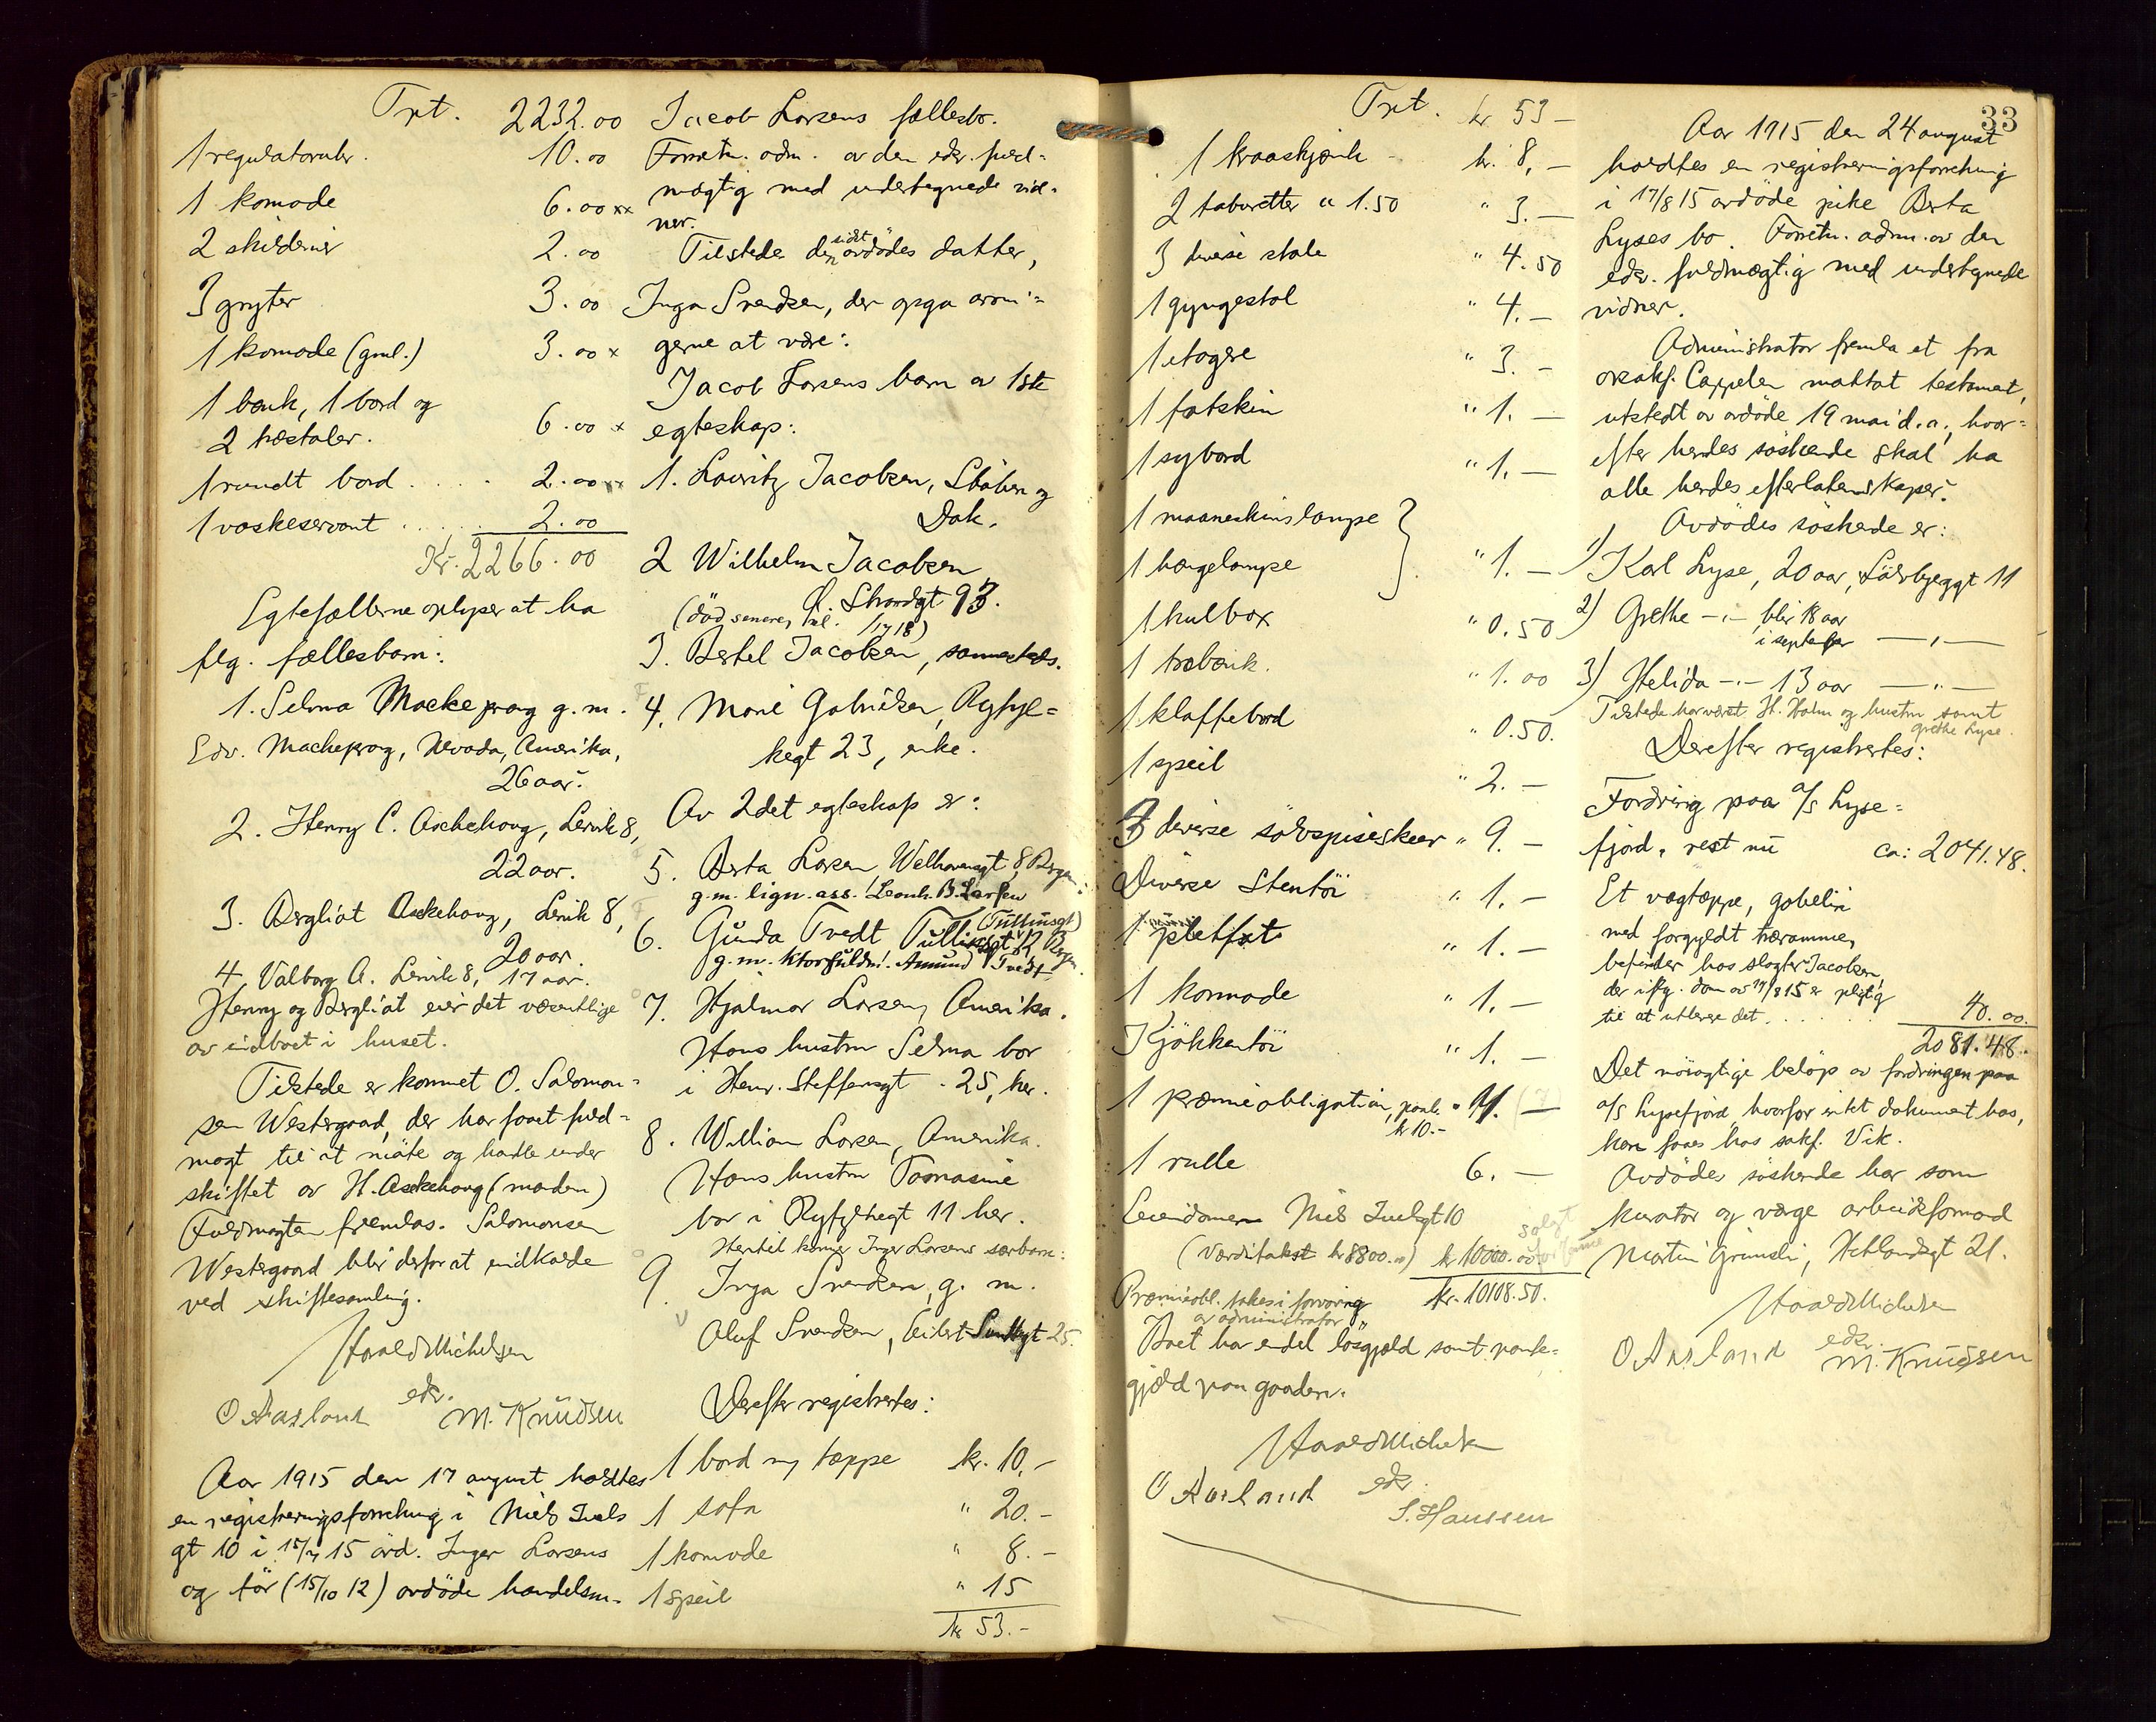 Trpt. 2232.00
1 regulatorukr. 10.00
1 komode 6.00 xx
2 skilderier 2.00
3 gryter 3.00
1 komode (gml.) 3.00 x
1 bænk, 1 bord og
2 træstoler. 6.00 x
1 rundt bord .... 2.00 xx
1 vaskeservant ..... 2.00
Kr. 2266.00
Egtefællerne oplyser at ha
flg. fællesbarn:
1. Selma Mackeprang g. m.
Edv. Mackeprang, Nevada, Amerika,
26 aar.
2. Henry C. Aschehoug, Lervik 8,
22 aar.
3. Bergliot Askehoug, Lervik 8,
20 aar.
4. Valborg A. Lervik 8, 17 aar.
Henry og Bergliot eier det væsentlige
av indboet i huset.
Tilstede er kommet O. Salomon-
sen Westergaard, der har faaet fuld-
magt til at møte og handle under
skiftet av H. Askehoug (manden)
Fuldmagten fremlas. Salomonsen
Westergaard blir derfor at indkalde
ved skiftesamling.
Harald Michelsen
edsv.
O Aarland M. Knudsen
Aar 1915 den 17 august holdtes
en registreringsforretning i Niels Juels
gt 10 i 15/7 15 avd. Inger Larsens
og før (15/10 12) avdøde handelsm.
Jacob Larsens fællesbo.
Forretn. adm. av den edsv. fuld-
mægtig med undertegnede vid-
ner.
Tilstede den sidst avdødes datter,
Inga Svendsen, der opga arvin-
gerne at være:
Jacob Larsens barn av 1ste
egteskap:
1. Lauritz Jacobsen, Støberg
Dok.
2 Wilhelm Jacobsen
Ø. Strandgt 93.
(død senere, 1918)
3. Bertel Jacobsen, sammesteds.
4. Marie Gabrielsen, Ryfyl-
kegt 23, enke.
Av 2det egteskap er:
5. Berta Larsen, Welhavensgt 8, Bergen
g. m. lign. ass. Leonh. B. Larsen
6. Gunda Tvedt (Tullinsgt) 12 Bergen
g. m. ktorfuldm. Amund Tvedt
7. Hjalmar Larsen, Amerika.
Hans hustru Selma bor
i Henr. Steffensgt. 25, her.
8. William Larsen, Amerika.
Hans hustru Tomasine
bor i Ryfylkegt 11 her.
Hertil kommer Inger Larsens særbarn:
9. Inga Svendsen, g. m.
Oluf Svendsen, Eilert Sundtsgt 25.
Derefter registrertes:
1 bord m/ tæppe kr. 10.-
1 sofa " 20.-
1 komode " 8.-
1 speil " 15
kr 53.-
33
Trpt. kr 53 -
1 kraaskjænk - kr. 8, -
2 taburetter a 1.50 " 3. -
3 diverse stole " 4.50
1 gyngestol " 4. -
1 etagere " 3. -
1 fatskin " 1. -
1 sybord " 1. -
1 maaneskinslampe }
1 hængelampe } " 1. -
1 kulbox " 0.50
1 træbænk. " 1.00
1 klaffebord " 0.50.
1 speil " 2. -
3 diverse sølvspiseskeer " 9. -
Diverse Stentøi " 1. -
1 pletfat " 1. -
1 kommode " 1. -
Kjøkkentøi " 1. -
1 præmieobligation, paal.
kr 10.-
1 rulle 6. -
Eiendommen Niels Juelsgt 10 solgt
(Værditakst kr 8800.00) kr 10000.00
Præmieobl. takes i forvaring kr. 10108.50.
av administrator
Boet har endel løsgjæld samt pante-
gjæld paa gaarden.
Harald Michelsen
edsv.
O Aarland S. Hanssen
Aar 1915 den 24 august
holdtes en registreringsforretning
i 17/8 15 avdøde pike Berta
Lyses bo. Forretn. adm. av den
edsv. fuldmægtig med undertegnede
vidner.
Administrator fremla et fra
orsakf. Cappelen mottat testament,
utstedt av avdøde 19 mai d. a., hvor-
efter hendes søskende skal ha
alle hendes efterlatenskaper.
Avdødes søskende er:
1) Karl Lyse, 20 aar, Sølvbjerggt 11
2) Grethe -"- blir 18 aar
i september -"-
3) Helida -"- 13 aar -"-
Tilstede har været H. Holm og hustru samt
Grethe Lyse.
Derefter registrertes:
Fordring paa a/s Lyse-
fjord, rest nu ca: 2041.48.
Et vægtæppe, gobelin
med forgyldt træramme,
befinder hos slagter Jacobsen,
der iflg. dom av 17/8 15 er pligtig
til at utlevere det. ...... 40.00.
2081.48.
Det nøiagtige beløp av fordringen paa
a/s Lysefjord, hvorfor intet dokument has,
kan faaes hos sakf. Vik.
Avdødes søskende har som
kurator og værge arbeidsformand
Martin Grimsli, Hetlandsgt 21.
Harald Michelsen
edsv.
O Aarland M. Knudsen